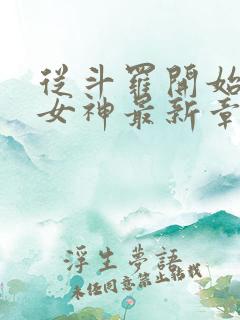 從斗羅開始
女神最新章
浮生夢語
未經同意禁止轉載